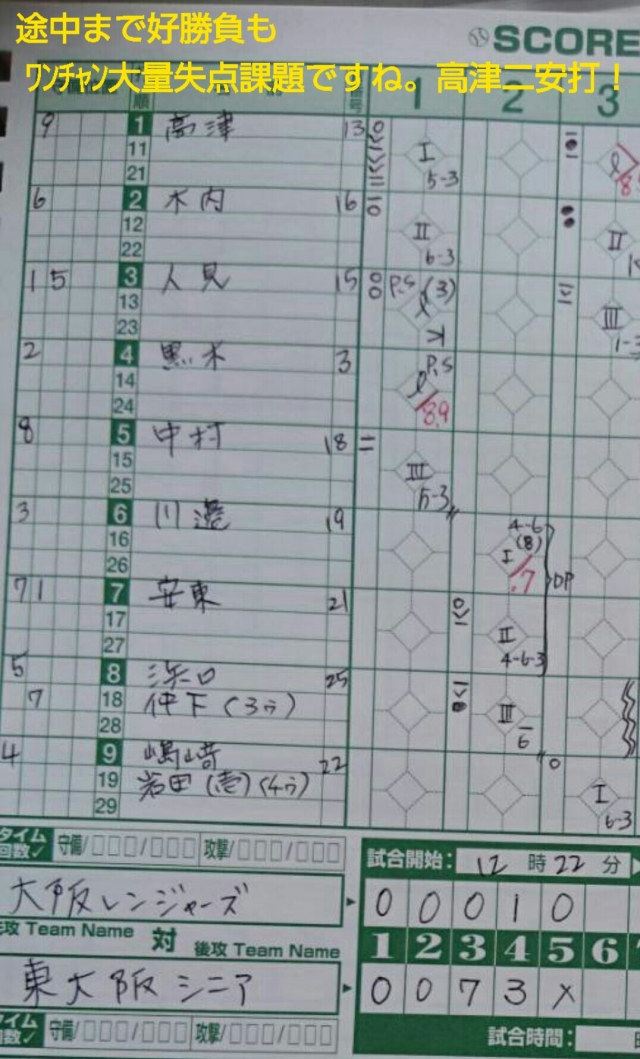 途中まで好勝負も
ワンチャン大量失点課題ですね。高津二安打！
SCORE
1 2 3
9 1 高津 13 I 5-3
11
21
6 2 木内 16 II 6-3 II
12
22
15 3 人見 15 P.S (3) III 1-3
13
23
2 4 黒木 3 P.S 8.9
14
24
8 5 中村 18 III 5-3
15
25
3 6 川邉 19 4-6 (8) I .7 DP
16
26
71 7 安東 21 II 4-6-3
17
27
5 8 浜口 25 III 6
7 18 仲下(3ウ)
28
4 9 嶋崎 22 I 6-3
19 岩田(壱)(4ウ)
29
タイム回数✓ 守備/□□□/□□□ 攻撃/□□□/□□□
試合開始: 12時22分
大阪レンジャーズ 0 0 0 1 0
先攻 Team Name 対 後攻 Team Name 1 2 3 4 5 6
東大阪シニア 0 0 7 3 X
タイム回数✓ 守備/□□□/□□□ 攻撃/□□□/□□□
試合時間: